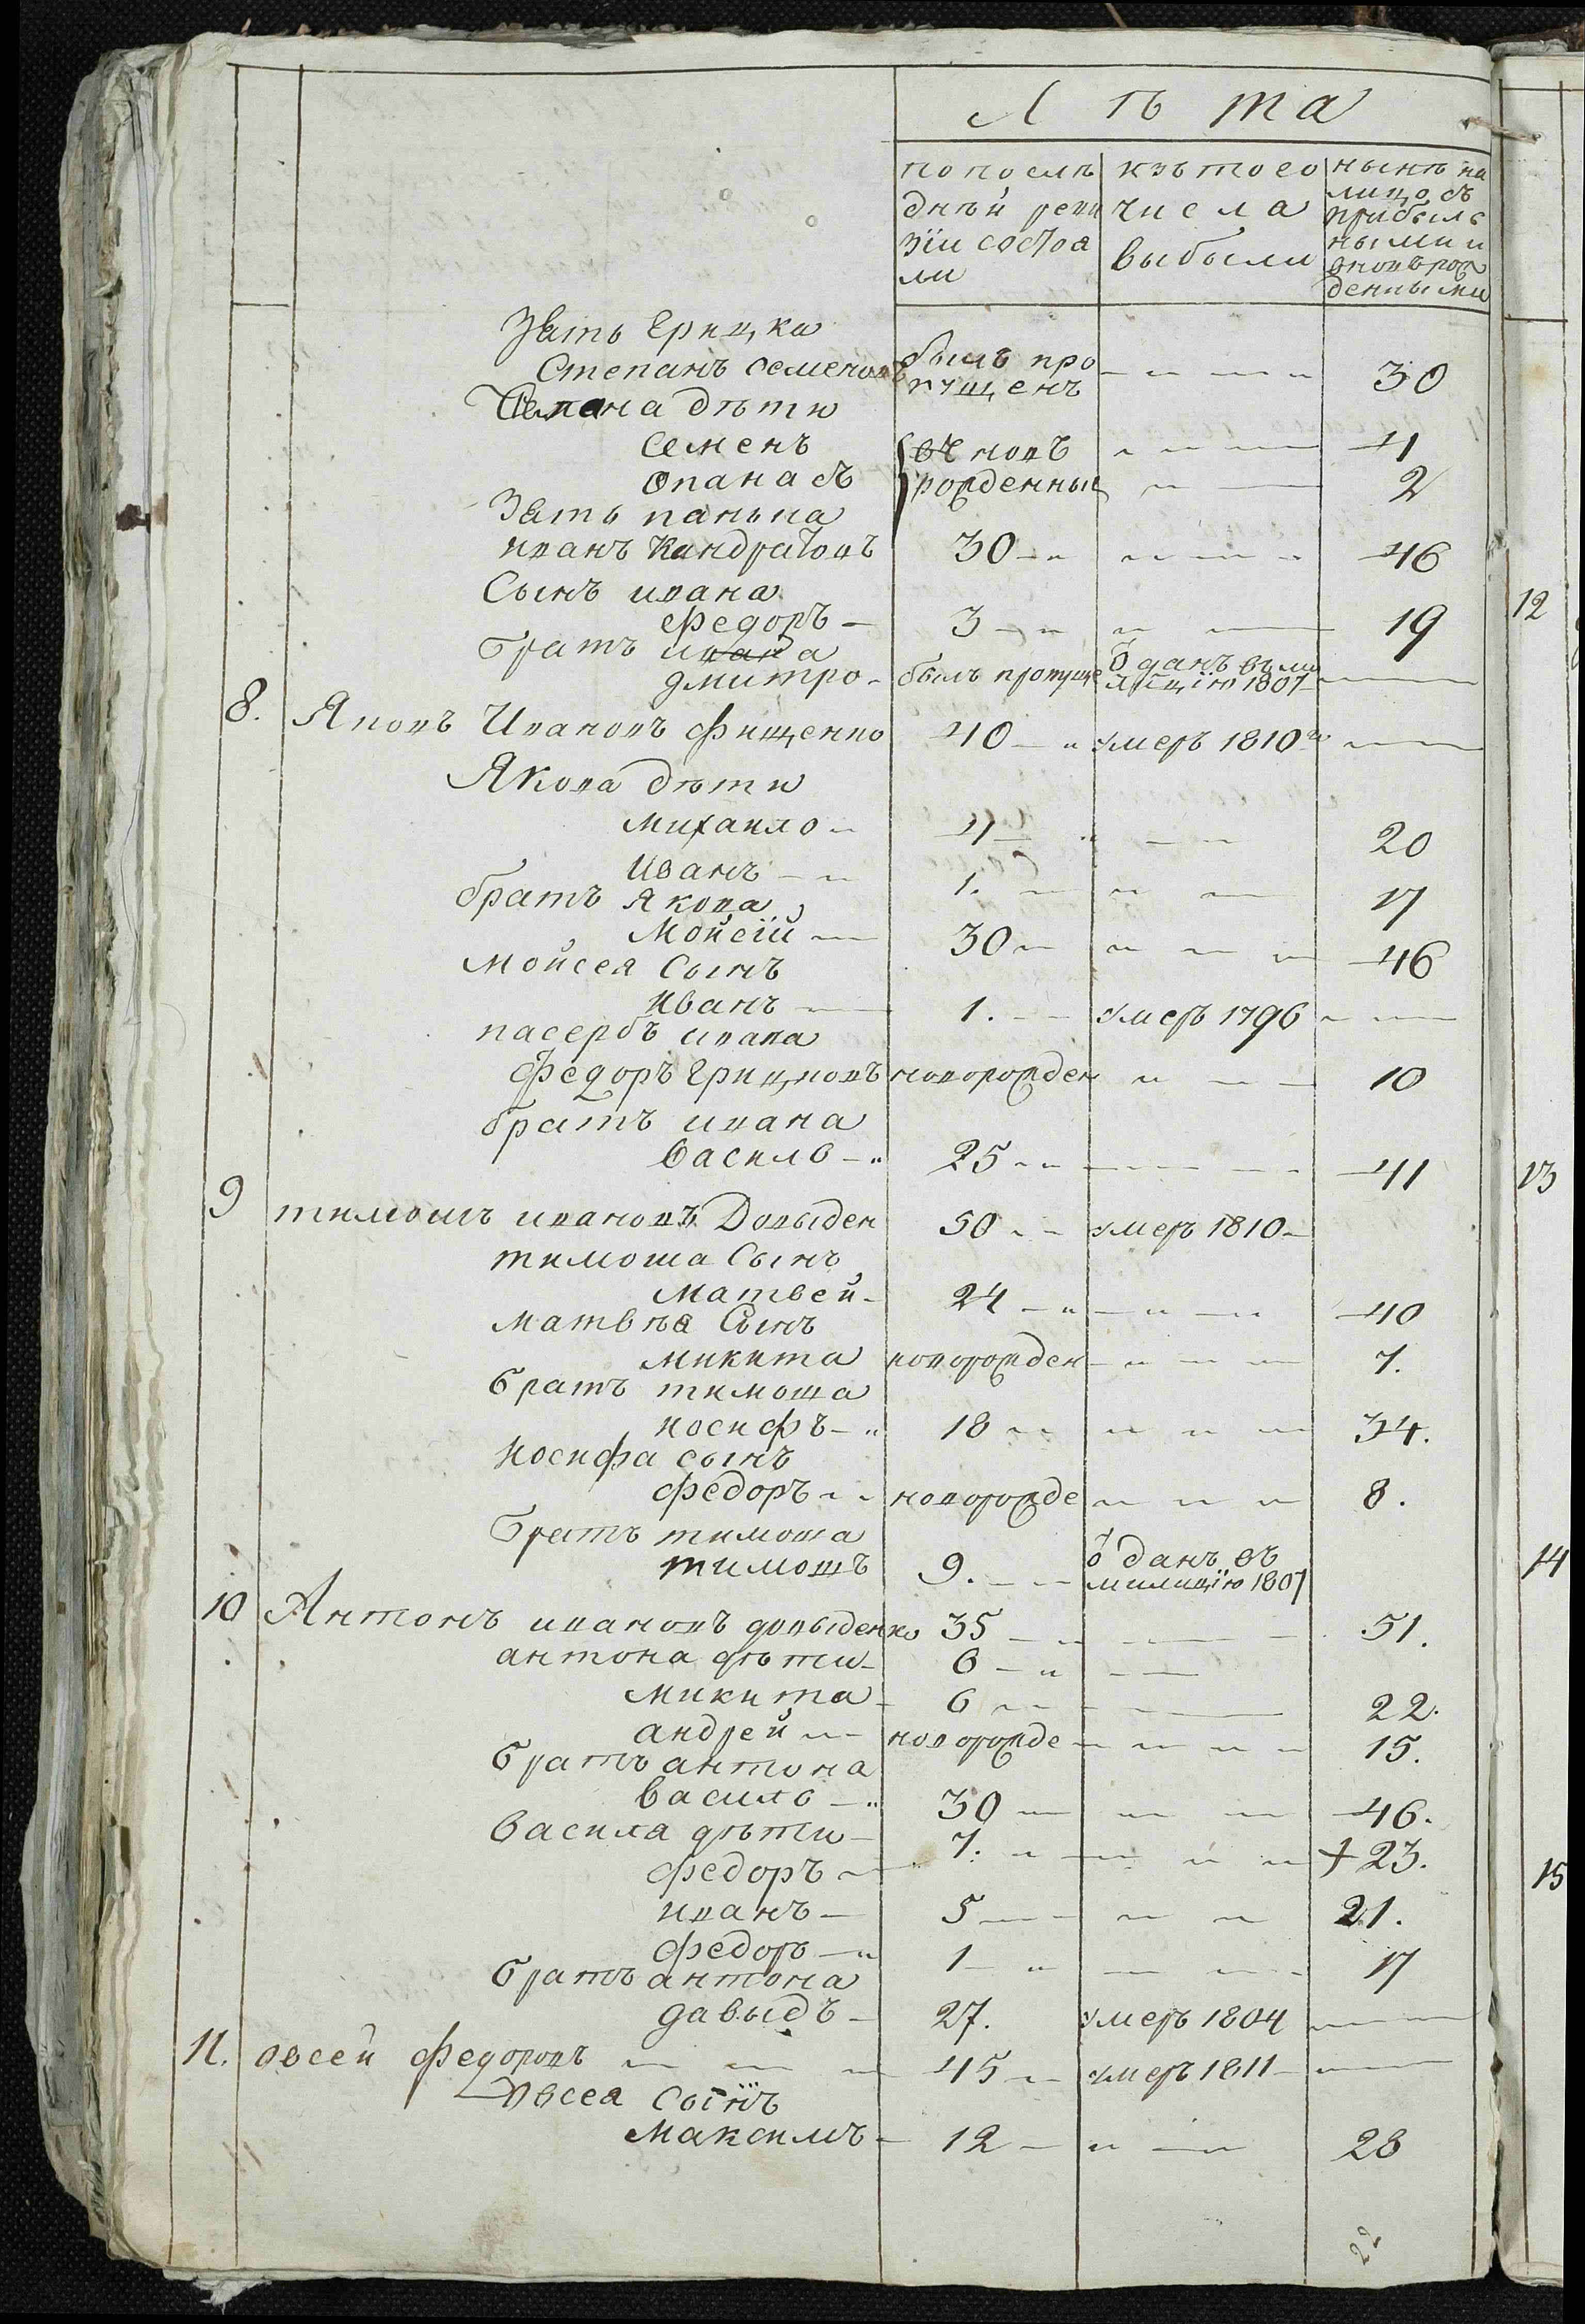 Лѣта
по послѣ
дней реви
зіи состоя
ли
изъ того
числа
выбыли
нынѣ на
лицо съ
прибыль
ными и
вновь рож
денными
Зять Грицка
Степанъ Семеновъ былъ про
пущенъ 30
Степана дѣти
Семенъ вновъ 4
Опанасъ рожденные 2
Зять панька
иванъ Кандратовъ 30 46
Сынъ ивана
Федоръ 3 19
братъ ивана
дмитро былъ пропуще ѿданъ въ ми
лицію 1807
8. Яковъ Ивановъ Фищенко 40 умеръ 1810го
Якова дѣти
михайло 4 20
Иванъ 1. 17
братъ Якова
Мойсій 30 46
Мойсея Сынъ
иванъ 1. умеръ 1796
пасербъ ивана
Федоръ Грицковъ новорожден 10
братъ ивана
василь 25 41
9 тимошъ ивановъ Довыден 50 умеръ 1810
тимоша Сынъ
матвей 24 40
матвѣя Сынъ
микита новорожден 7.
братъ тимоша
иосифъ 18 34.
иосифа сынъ
федоръ новорожде 8.
братъ тимоша
тимошъ 9. ѿданъ въ
милицію 1807
10 Антонъ ивановъ довыденко 35 51.
антона дѣти 6
микита 6 22.
андрей новорожде 15.
братъ антона
василь 30 46.
василя дѣти 7. + 23.
федоръ
иванъ 5 21.
федоръ 1 17
братъ антона
давыдъ 27. умеръ 1804
11. овсей федоровъ 45 умеръ 1811
Овсея Сынъ
максимъ 12 28
22
12
13
14
15